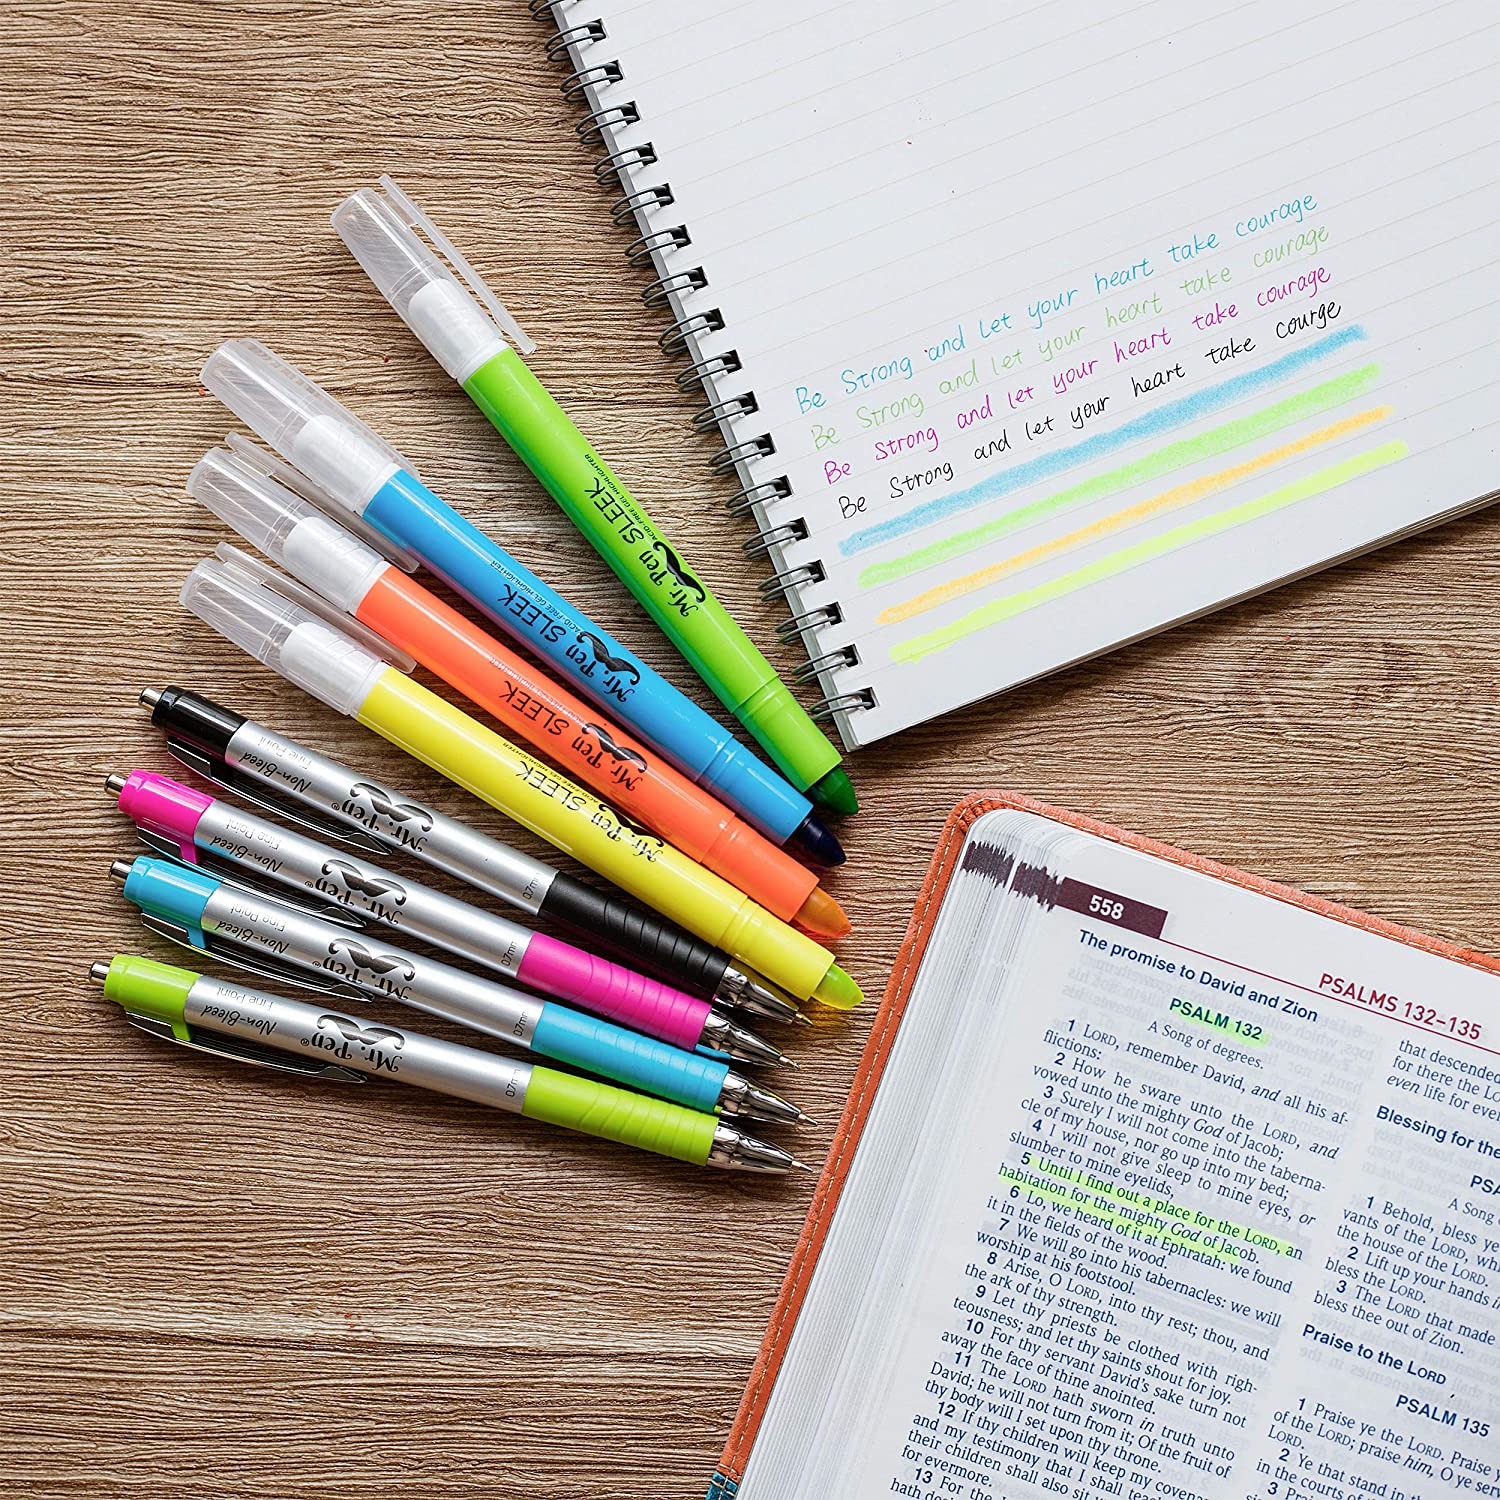 Be Strong and let your heart take courage
Be Strong and let your heart take courage
Be Strong and let your heart take courage
Be Strong and let your heart take courge
Mr. Pen SLEEK
ACID-FREE GEL HIGHLIGHTER
Mr. Pen SLEEK
ACID-FREE GEL HIGHLIGHTER
Mr. Pen SLEEK
Mr. Pen SLEEK
ACID-FREE GEL HIGHLIGHTER
Mr. Pen®
Non-Bleed
Fine Point
0.7mm
Mr. Pen®
Non-Bleed
Fine Point
0.7mm
Mr. Pen®
Non-Bleed
Fine Point
0.7mm
Mr. Pen®
Non-Bleed
Fine Point
0.7mm
558
PSALMS 132–135
The promise to David and Zion
PSALM 132
A Song of degrees.
1 LORD, remember David, and all his af-
flictions:
2 How he sware unto the LORD, and
vowed unto the mighty God of Jacob;
3 Surely I will not come into the taberna-
cle of my house, nor go up into my bed;
4 I will not give sleep to mine eyes, or
slumber to mine eyelids,
5 Until I find out a place for the LORD, an
habitation for the mighty God of Jacob.
6 Lo, we heard of it at Ephratah: we found
it in the fields of the wood.
7 We will go into his tabernacles: we will
worship at his footstool.
8 Arise, O LORD, into thy rest; thou, and
the ark of thy strength.
9 Let thy priests be clothed with righ-
teousness; and let thy saints shout for joy.
10 For thy servant David's sake turn not
away the face of thine anointed.
11 The LORD hath sworn in truth unto
David; he will not turn from it; Of the fruit of
thy body will I set upon thy throne.
12 If thy children will keep my
and my testimony that I shall
their children shall also sit
for evermore.
13 For the
hath
that descended
for there the
even life for
Blessing for the
A Song
1 Behold, bless ye
vants of the LORD,
the house of the LORD.
2 Lift up your hands
bless the LORD.
3 The LORD that made
bless thee out of Zion.
Praise to the LORD
PSALM 135
1 Praise ye the LORD. Praise
of the LORD; praise him, O ye
LORD.
2 Ye that stand in
in the courts of
3 Praise